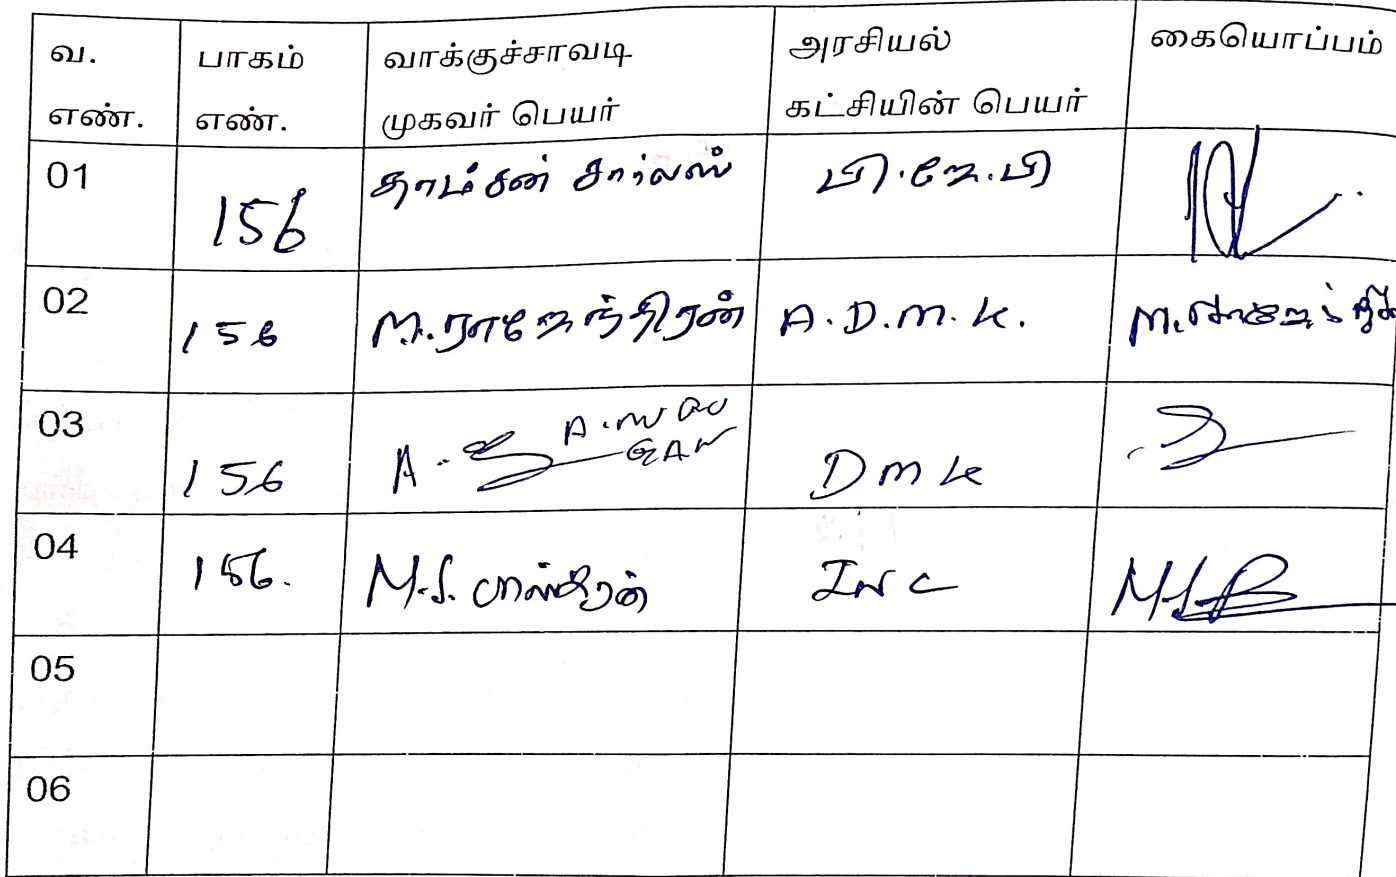 வ. எண். பாகம் எண். வாக்குச்சாவடி முகவர் பெயர் அரசியல் கட்சியின் பெயர் கையொப்பம்
01 156 தாம்சன் சார்லஸ் பி.ஜே.பி
02 156 M.ராஜேந்திரன் A.D.M.K.
03 156 A. DMK
04 156. M.S. பாஸ்கரன் INC
05
06